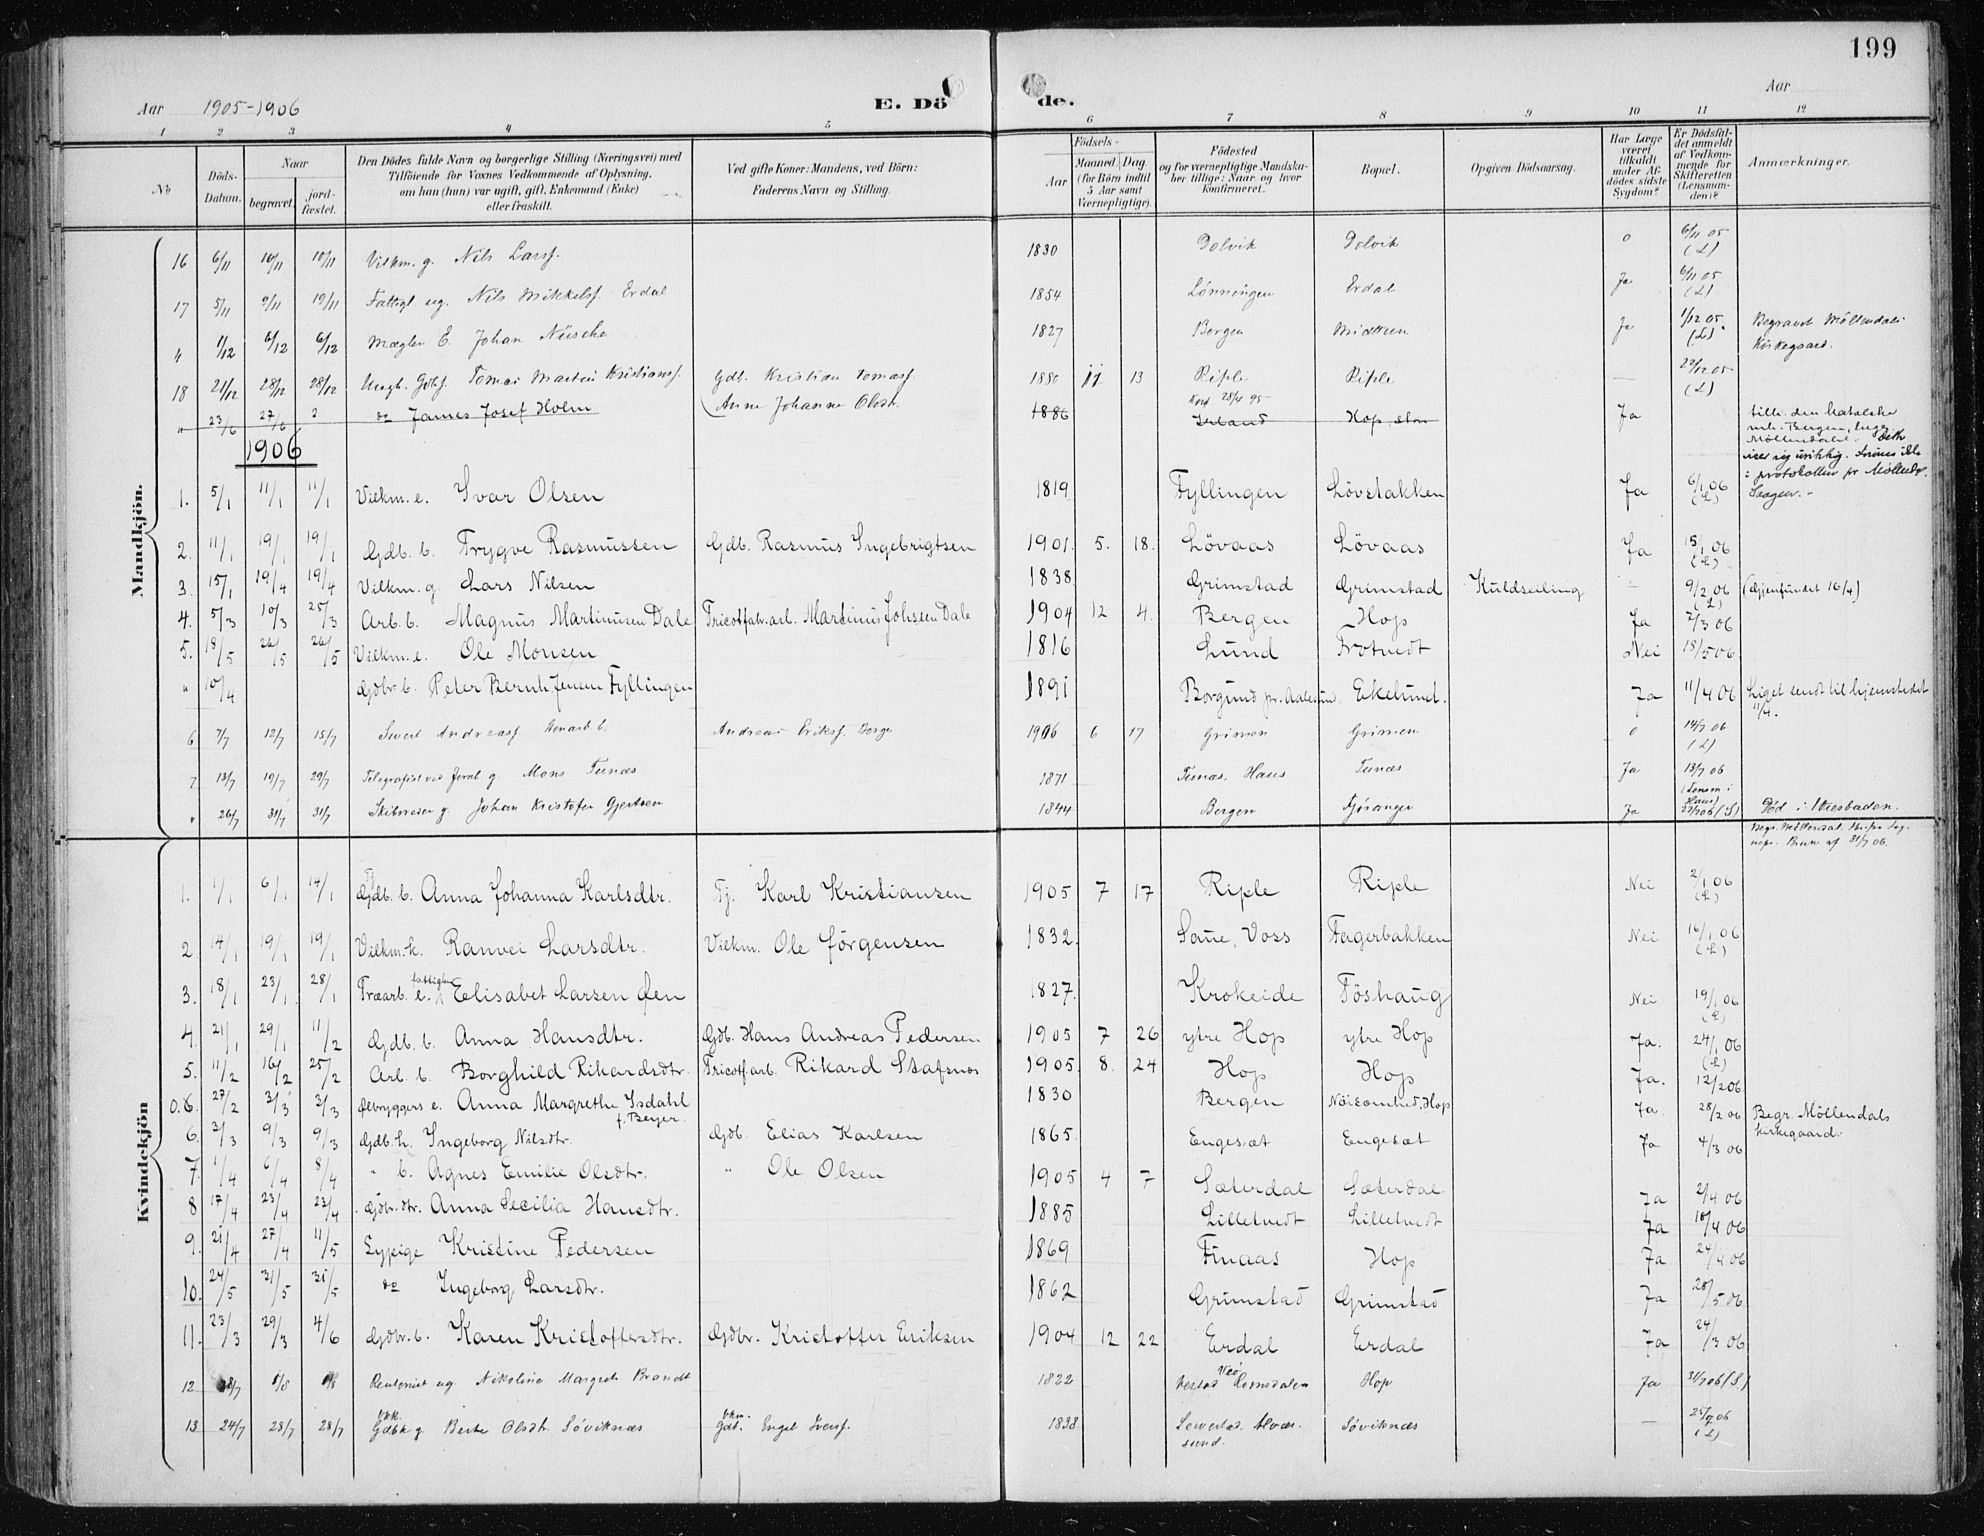 199
Aar 1905-1906 E. Dö de. Aar
1 2 3 4 5 6 7 8 9 10 11 12
No
Döds-Datum.
Naar
begravet.
jord-fæstet.
Den Dödes fulde Navn og borgerlige Stilling (Næringsvei) med
Tilföiende for Voxnes Vedkommende af Oplysning,
om han (hun) var ugift, gift, Enkemand (Enke)
eller fraskilt.
Ved gifte Koner: Mandens, ved Börn:
Faderens Navn og Stilling.
Födsels-
Aar
Maaned. Dag.
(for Börn indtil
5 Aar samt
Værnepligtige).
Födested
og for værnepligtige Mandska-
ber tillige: Naar og hvor
konfirmeret.
Bopæl.
Opgiven Dödsaarsag.
Har Læge
været
tilkaldt
under Af-
dödes sidste
Sygdom?
Er Dödsfal-
det anmeldt
af Vedkom-
mende for
Skifteretten
(Lensman-
den)?
Anmærkninger.
Mandkjön.
16 6/11 10/11 10/11 Vilkm. g. Nils Larsf. 1830 Dolvik Dolvik 0 6/11 05 (L)
17 5/11 9/11 19/11 Fattigl ug. Nils Mikkelsf. Erdal 1854 Lönningen Erdal Ja 6/11 05 (L)
" 1/12 6/12 6/12 Mægler E. Johan Nüsche 1827 Bergen Midttun Ja 1/12 05 (L) Begravet Möllendals Kirkegaard.
18 21/12 28/12 28/12 Ungk. Gdbf. Tomas Martin Kristiansf. Gdb. Kristian Tomasf. 1880 11 13 Riple Riple — 22/12 05 (L)
Anne Johanne Olsdt. Konf 28/4 95
" 23/6 27/6 2 do James Josef Holm 1886 Irland Hop, Ja tilh. den katolske
Möllendalel.
1906
1. 5/1 11/1 11/1 Vilkm. e. Ivar Olsen 1819 Fyllingen Lövstakken Ja 6/1 06 (L)
2. 11/1 19/1 19/1 Gdb. b. Trygve Rasmussen Gdb. Rasmus Ingebrigtsen 1901. 5. 18. Lövaas Lövaas Ja 15/1 06 (L)
3. 15/1 19/4 19/4 Vilkm. g. Lars Nilsen 1838 Grimstad Grimstad Kuldseiling — 9/2 06 (L) (Gjenfundet 16/4)
4. 5/3 10/3 25/3 Arb. b. Magnus Martinusen Dale Tricotfabr.arb. Martinus Johsen Dale 1904 12 4. Bergen Hop Ja 7/3 06
5. 18/5 26/5 26/5 Vilkm. e. Ole Monsen 1816 Lund Trotvedt Nei 18/5 06
" 10/4 Gdbr. b. Peter Bernh Jensen Fyllingen 1891 Borgund pr. Aalesund Eikelund. Ja 11/4 06 Liget sendt til hjemstedet 11/4.
6 7/7 12/7 15/7 Sivert Andreasf. b. Andreas Eriksf. Borge 1906 6 17 Grimen Grimen 0 14/7 06 (L)
7 13/7 19/7 29/7 Telegrafist ved Jernb g. Mons Tunæs 1871 Tunæs, Haus Tunæs Ja 13/7 06 (Lensm i Haus)
" 26/7 31/7 31/7 Skibsreder g. Johan Kristofer Gjertsen 1844 Bergen Fjösanger Ja (S) Död i Wiesbaden.
Begr. Möllendal. 31/7 06.
Kvindekjön
1. 1/1 6/1 14/1 Gdb. b. Anna Johanna Karlsdtr. Tj. Karl Kristiansen 1905 7 17 Riple Riple Nei 2/1 06 (L)
2 14/1 19/1 19/1 Vilkm. k. Ranvei Larsdtr. Vilkm. Ole Jörgensen 1832. Saue, Voss Fagerbakken Nei 16/1 06 (L)
3. 18/1 23/1 28/1 Træarb. e. fattiglem Elisabet Larsen Öen 1827. Krokeide Töshaug Nei 19/1 06 (L)
4. 21/1 29/1 11/2 Gdb. b. Anna Hansdtr. Gdb. Hans Andreas Pedersen 1905 7 26 ytre Hop ytre Hop Ja. 24/1 06 (L)
5. 11/2 16/2 25/2 Arb. b. Borghild Rikardsdtr. Tricotf.arb. Rikard Stafsnæs 1905 8. 24 Hop Hop Ja. 12/2 06
0.6. 27/2 3/3 3/3 Ölbryggers e. Anna Margrethe Isdahl f. Beyer. 1830 Bergen Nöisomhed, Hop Ja. 28/2 06 Begr. Möllendals kirkegaard.
6. 2/3 9/3 9/3 Gdb. h. Ingeborg Nilsdtr. Gdb. Elias Karlsen 1865. Engesæt Engesæt Ja 4/3 06
7. 1/4 6/4 8/4 " b. Agnes Emilie Olsdtr. " Ole Olsen 1905 4 7 Sæterdal Sæterdal Ja 2/4 06
8 17/4 23/4 23/4 Gdbr. dtr. Anna Secilia Hansdtr. 1885 Lilletvedt Lilletvedt Ja 18/4 06
9. 21/4 27/4 11/5 Sypige Kristine Pedersen 1869 Finaas Hop Ja 24/4 06
10. 24/5 31/5 31/5 do Ingeborg Larsdtr. 1862 Grimstad Grimstad Ja 28/5 06
11. 23/3 29/3 4/6 Gdbr. b. Karen Kristoffersdtr. Gdbr. Kristoffer Eriksen 1904 12 22 Erdal Erdal Ja 24/3 06
12 28/7 1/8 1/8 Rentenist ug Nikoline Margrete Brandt 1822 Veö Romsdalen Hop Ja 31/7 06 (S.)
13 24/7 28/7 28/7 Gdbk g. Berte Olsdt. Söviknæs Gdb. Engel Iversf. 1838 Alvær-sund. Söviknæs — 25/7 06 (L)